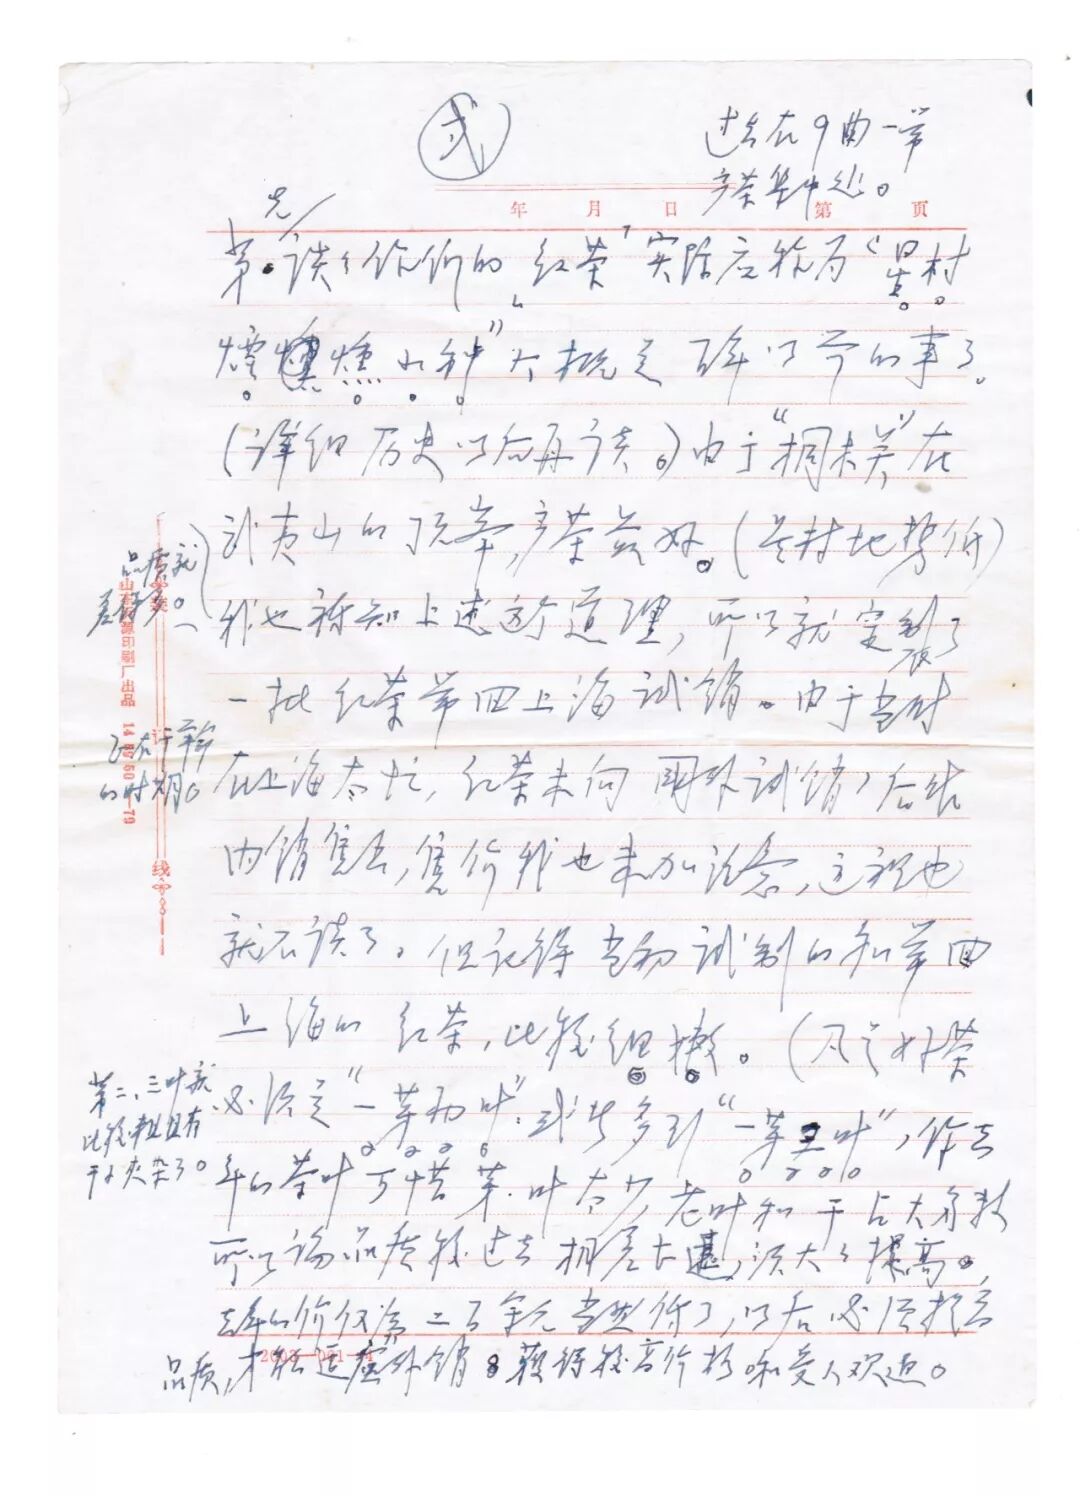 弍
过去在9曲一带
产茶集中处。
年 月 日 第 页
先
第。谈谈你们的「红茶」实际应称为“星村
烟燻小种”大概是百年以前的事了。
(详细历史以后再谈。)由于“桐木关”在
武夷山的顶峯,产茶最好。(星村地势低)
品质就
差得多。
我也深知上述这个道理,所以就定制了
一批红茶带回上海试销。由于当时
正在
的时期。
在上海太忙,红茶未向国外试销,后供
内销售去,售价我也未加注意,这里也
就不谈了。但记得当初试制的和带回
上海的红茶,比较细嫩。(凡是好茶
第二、三叶就
比较粗且有
干夹杂了。
必须是“一芽两叶”。或片多到“一芽三叶”,你去
年的茶叶可惜芽叶太少,老叶和干占大多数
所以论品质较过去相差太远,须大大提高。
去年的价仅为二百余元当然低了,以后必须提高
品质,才能适应外销 获得较高价格和受人欢迎。
山东沂源印刷厂出品 14 87 60 —79
订
线
2003—051—4